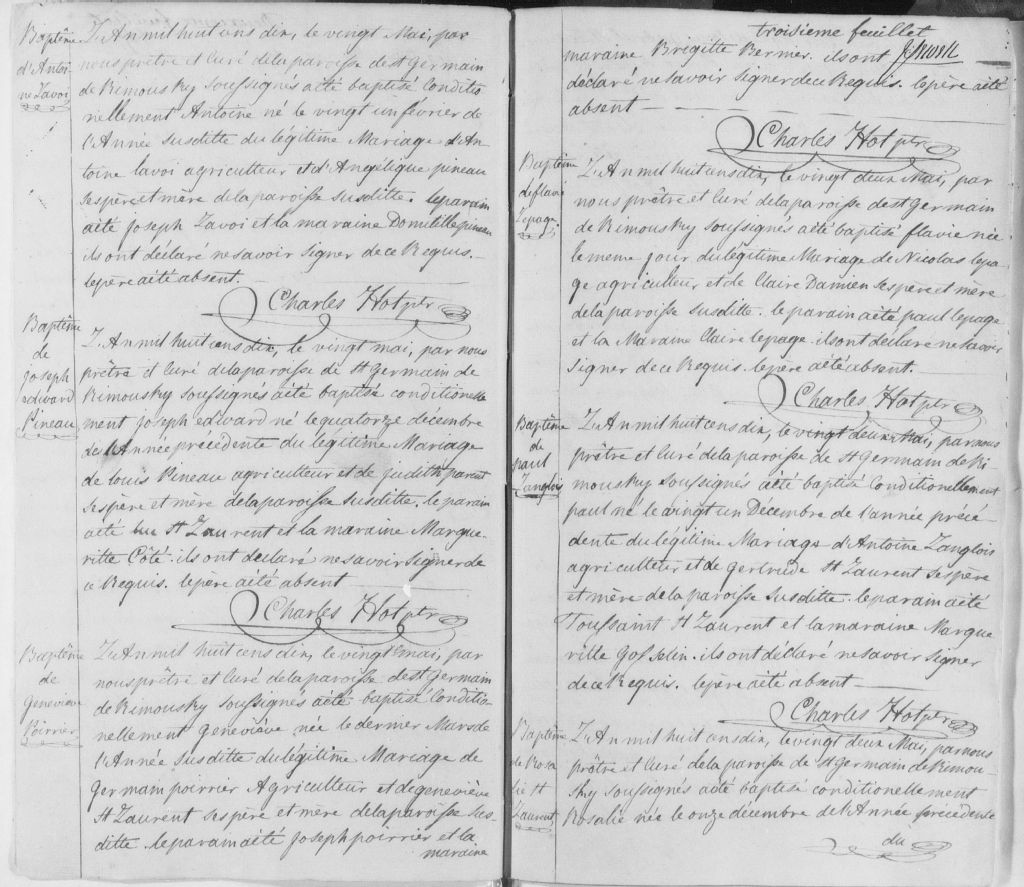 Baptême
d'Antoi-
ne Lavoi
L'An mil huit cens dix, le vingt Mai, par
nous prêtre et Curé de la paroisse de St Germain
de Rimousky soussignés a été baptisé Conditio-
nellement Antoine né le vingt un février de
l'Année susditte du légitime Mariage d'An-
toine lavoi agriculteur et d'Angélique pineau
ses père et mère de la paroisse susditte. le parain
a été Joseph Lavoi et la maraine Domitille pineau
ils ont déclaré ne savoir signer de ce Requis.
le père a été absent.
Charles Hot ptr
Baptême
de
Joseph
edward
Pineau
L'An mil huit cens dix, le vingt mai, par nous
prêtre et Curé de la paroisse de St Germain de
Rimousky soussignés a été baptisé conditionelle
ment Joseph edward né le quatorze décembre
de l'Année précédente du légitime Mariage
de louis Pineau agriculteur et de judith parent
ses père et mère de la paroisse susditte. le parain
a été luc St Laurent et la maraine Margue-
ritte Côté. ils ont déclaré ne savoir signer de
ce Requis. le père a été absent
Charles Hot ptr
Baptême
de
Geneviève
Poirrier
L'An mil huit cens dix, le vingt mai, par
nous prêtre et Curé de la paroisse de St Germain
de Rimousky soussignés a été baptisé Conditio-
nellement Geneviève née le dernier Mars de
l'Année susditte du légitime Mariage de
Germain poirrier Agriculteur et de geneviève
St Laurent ses père et mère de la paroisse sus-
ditte. le parain a été Joseph poirrier et la
maraine
troisième feuillet
maraine Brigitte Bernier. ils ont
déclaré ne savoir signer de ce Requis. le père a été
absent
Charles Hot ptr
Baptême
de flavie
Lepage
L'An mil huit cens dix, le vingt deux Mai, par
nous prêtre et Curé de la paroisse de St Germain
de Rimousky soussignés a été baptisé flavie née
le meme jour du légitime Mariage de Nicolas lepa-
ge agriculteur et de Claire Damien ses père et mère
de la paroisse susditte. le parain a été paul lepage
et la Maraine Claire lepage. ils ont déclaré ne savoir
signer de ce Requis. le père a été absent.
Charles Hot ptr
Baptême
de
paul
Langlois
L'An mil huit cens dix, le vingt deux Mai, par nous
prêtre et Curé de la paroisse de St Germain de Ri-
mousky soussignés a été baptisé Conditionellement
paul né le vingt un Décembre de l'année précé-
dente du légitime Mariage d'Antoine Langlois
agriculteur et de Gertrude St Laurent ses père
et mère de la paroisse susditte. le parain a été
Toussaint St Laurent et la maraine Margue
ritte Gosselin. ils ont déclaré ne savoir signer
de ce Requis. le père a été absent
Charles Hot ptr
Baptême
de Rosa
lie St
Laurent
L'An mil huit cens dix, le vingt deux Mai, par nous
prêtre et Curé de la paroisse de St Germain de Rimou-
sky soussignés a été baptisé conditionellement
Rosalie née le onze décembre de l'Année précédente
du